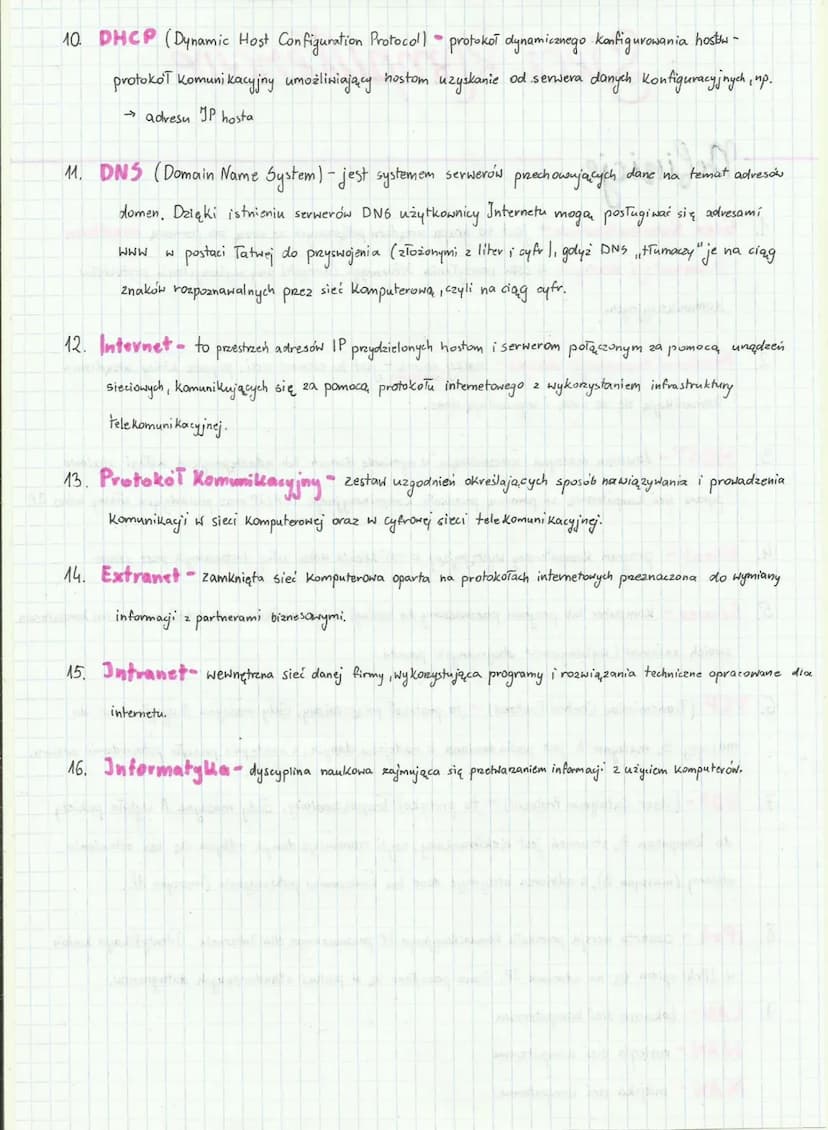 10. DHCP (Dynamic Host Configuration Protocol) - protokoł dynamicznego konfigurowania hostów -
protokoł komunikacyjny umożliwiający hostom uzyskanie od serwera danych konfiguracyjnych, np.
→ adresu IP hosta
11. DNS (Domain Name System) - jest systemem serwerów przechowujących dane na temat adresów
domen. Dzięki istnieniu serwerów DNS użytkownicy Internetu mogą posługiwać się adresami
WWW w postaci łatwej do przyswojenia (złożonymi z liter i cyfr), gdyż DNS „tłumaczy" je na ciąg
znaków rozpoznawalnych przez sieć komputerową, czyli na ciąg cyfr.
12. Internet - to przestrzeń adresów IP przydzielonych hostom i serwerom połączonym za pomocą urządzeń
sieciowych, komunikujących się za pomocą protokołu internetowego z wykorzystaniem infrastruktury
telekomunikacyjnej.
13. Protokół Komunikacyjny - zestaw uzgodnień określających sposób nawiązywania i prowadzenia
komunikacji w sieci komputerowej oraz w cyfrowej sieci telekomunikacyjnej.
14. Extranet - zamknięta sieć komputerowa oparta na protokołach internetowych przeznaczona do wymiany
informacji z partnerami biznesowymi.
15. Intranet - wewnętrzna sieć danej firmy, wykorzystująca programy i rozwiązania techniczne opracowane dla
internetu.
16. Informatyka - dyscyplina naukowa zajmująca się przetwarzaniem informacji z użyciem komputerów.